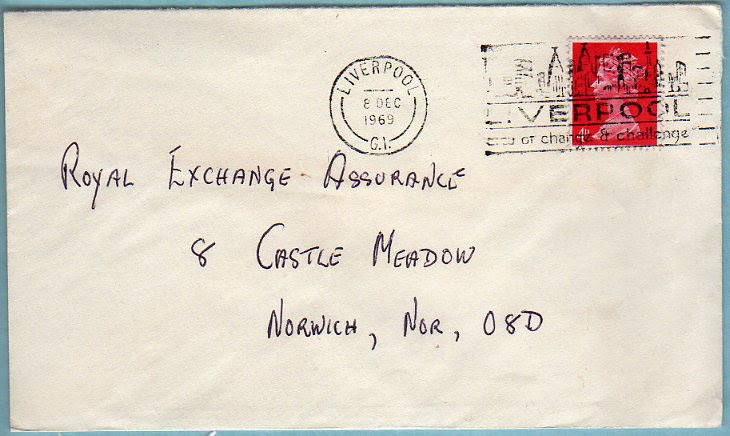 LIVERPOOL
8 DEC
1969
G.I.
LIVERPOOL
city of change & challenge
4D
ROYAL EXCHANGE ASSURANCE
8 CASTLE MEADOW
NORWICH, NOR, 08D